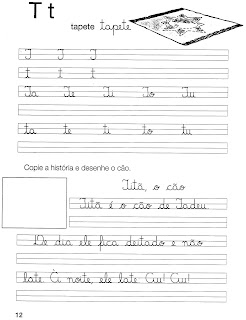 T t
tapete tapete
T T T
t t t
Ta Te Ti To Tu
ta te ti to tu
Copie a história e desenhe o cão.
Titã, o cão
Titã é o cão de Tadeu
De dia ele fica deitado e não
late À noite, ele late Au! Au!
12